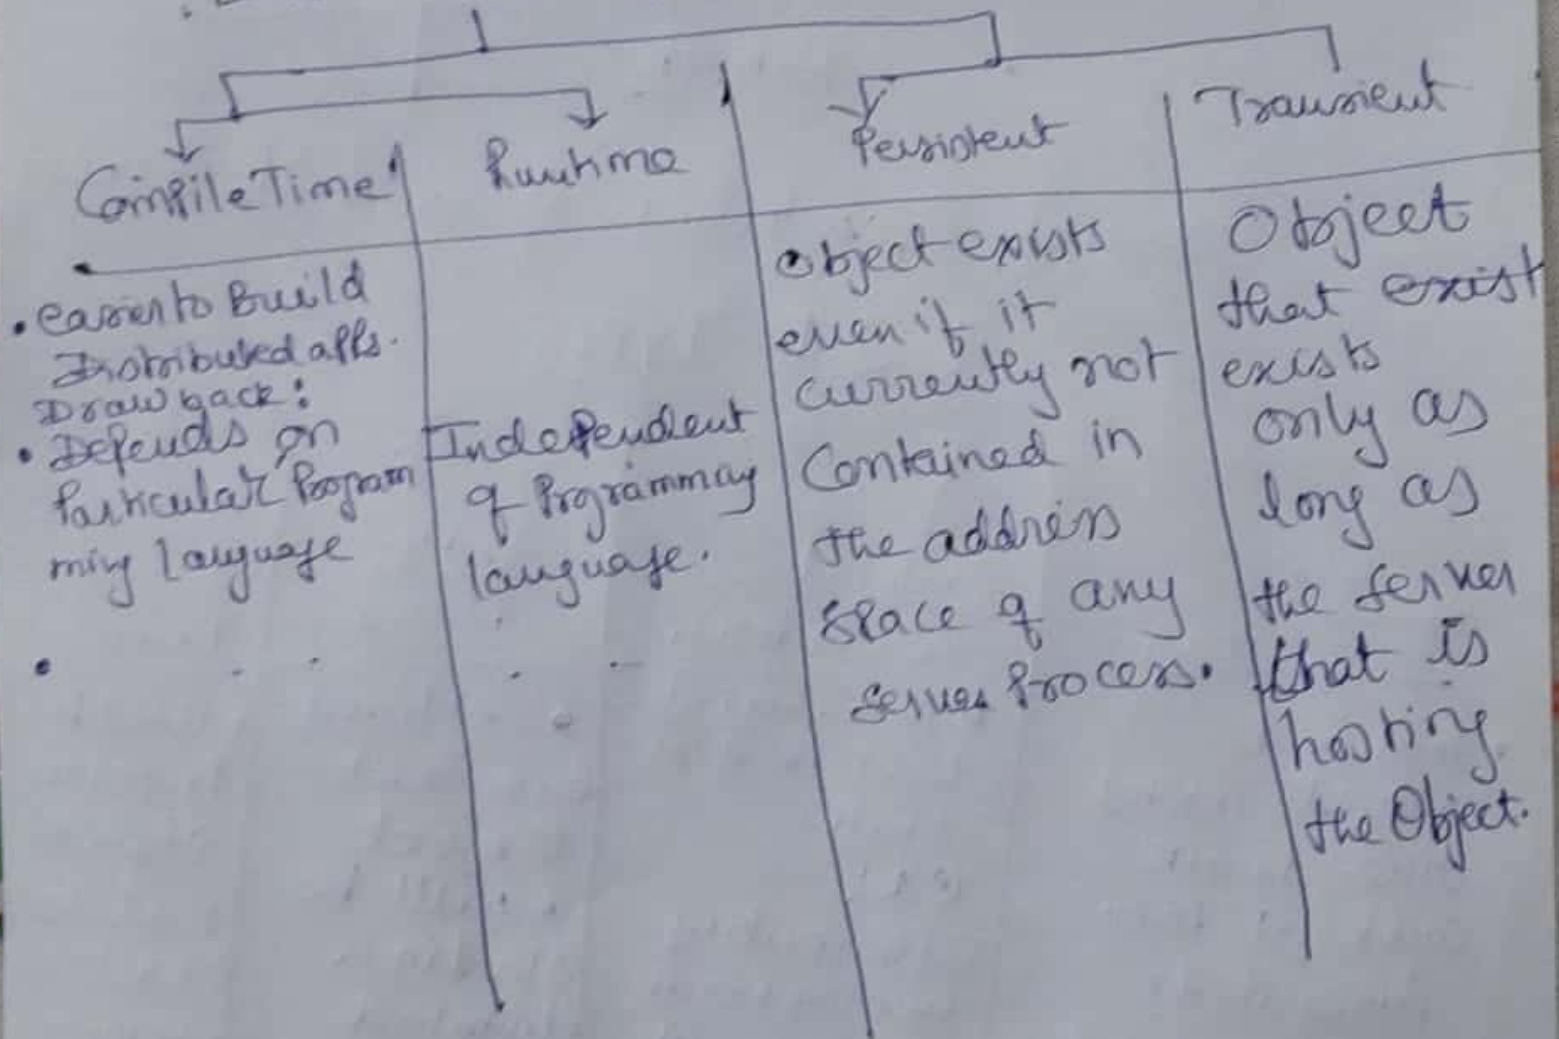 Compile Time
Runtime
Persistent
Transient
• easier to Build
Distributed apps.
Drawback:
• Depends on
Particular Program
ming language
Independent
of Programming
language.
Object exists
even if it
currently not
Contained in
the address
space of any
server process.
Object
that exist
exists
only as
long as
the server
that is
hosting
the Object.